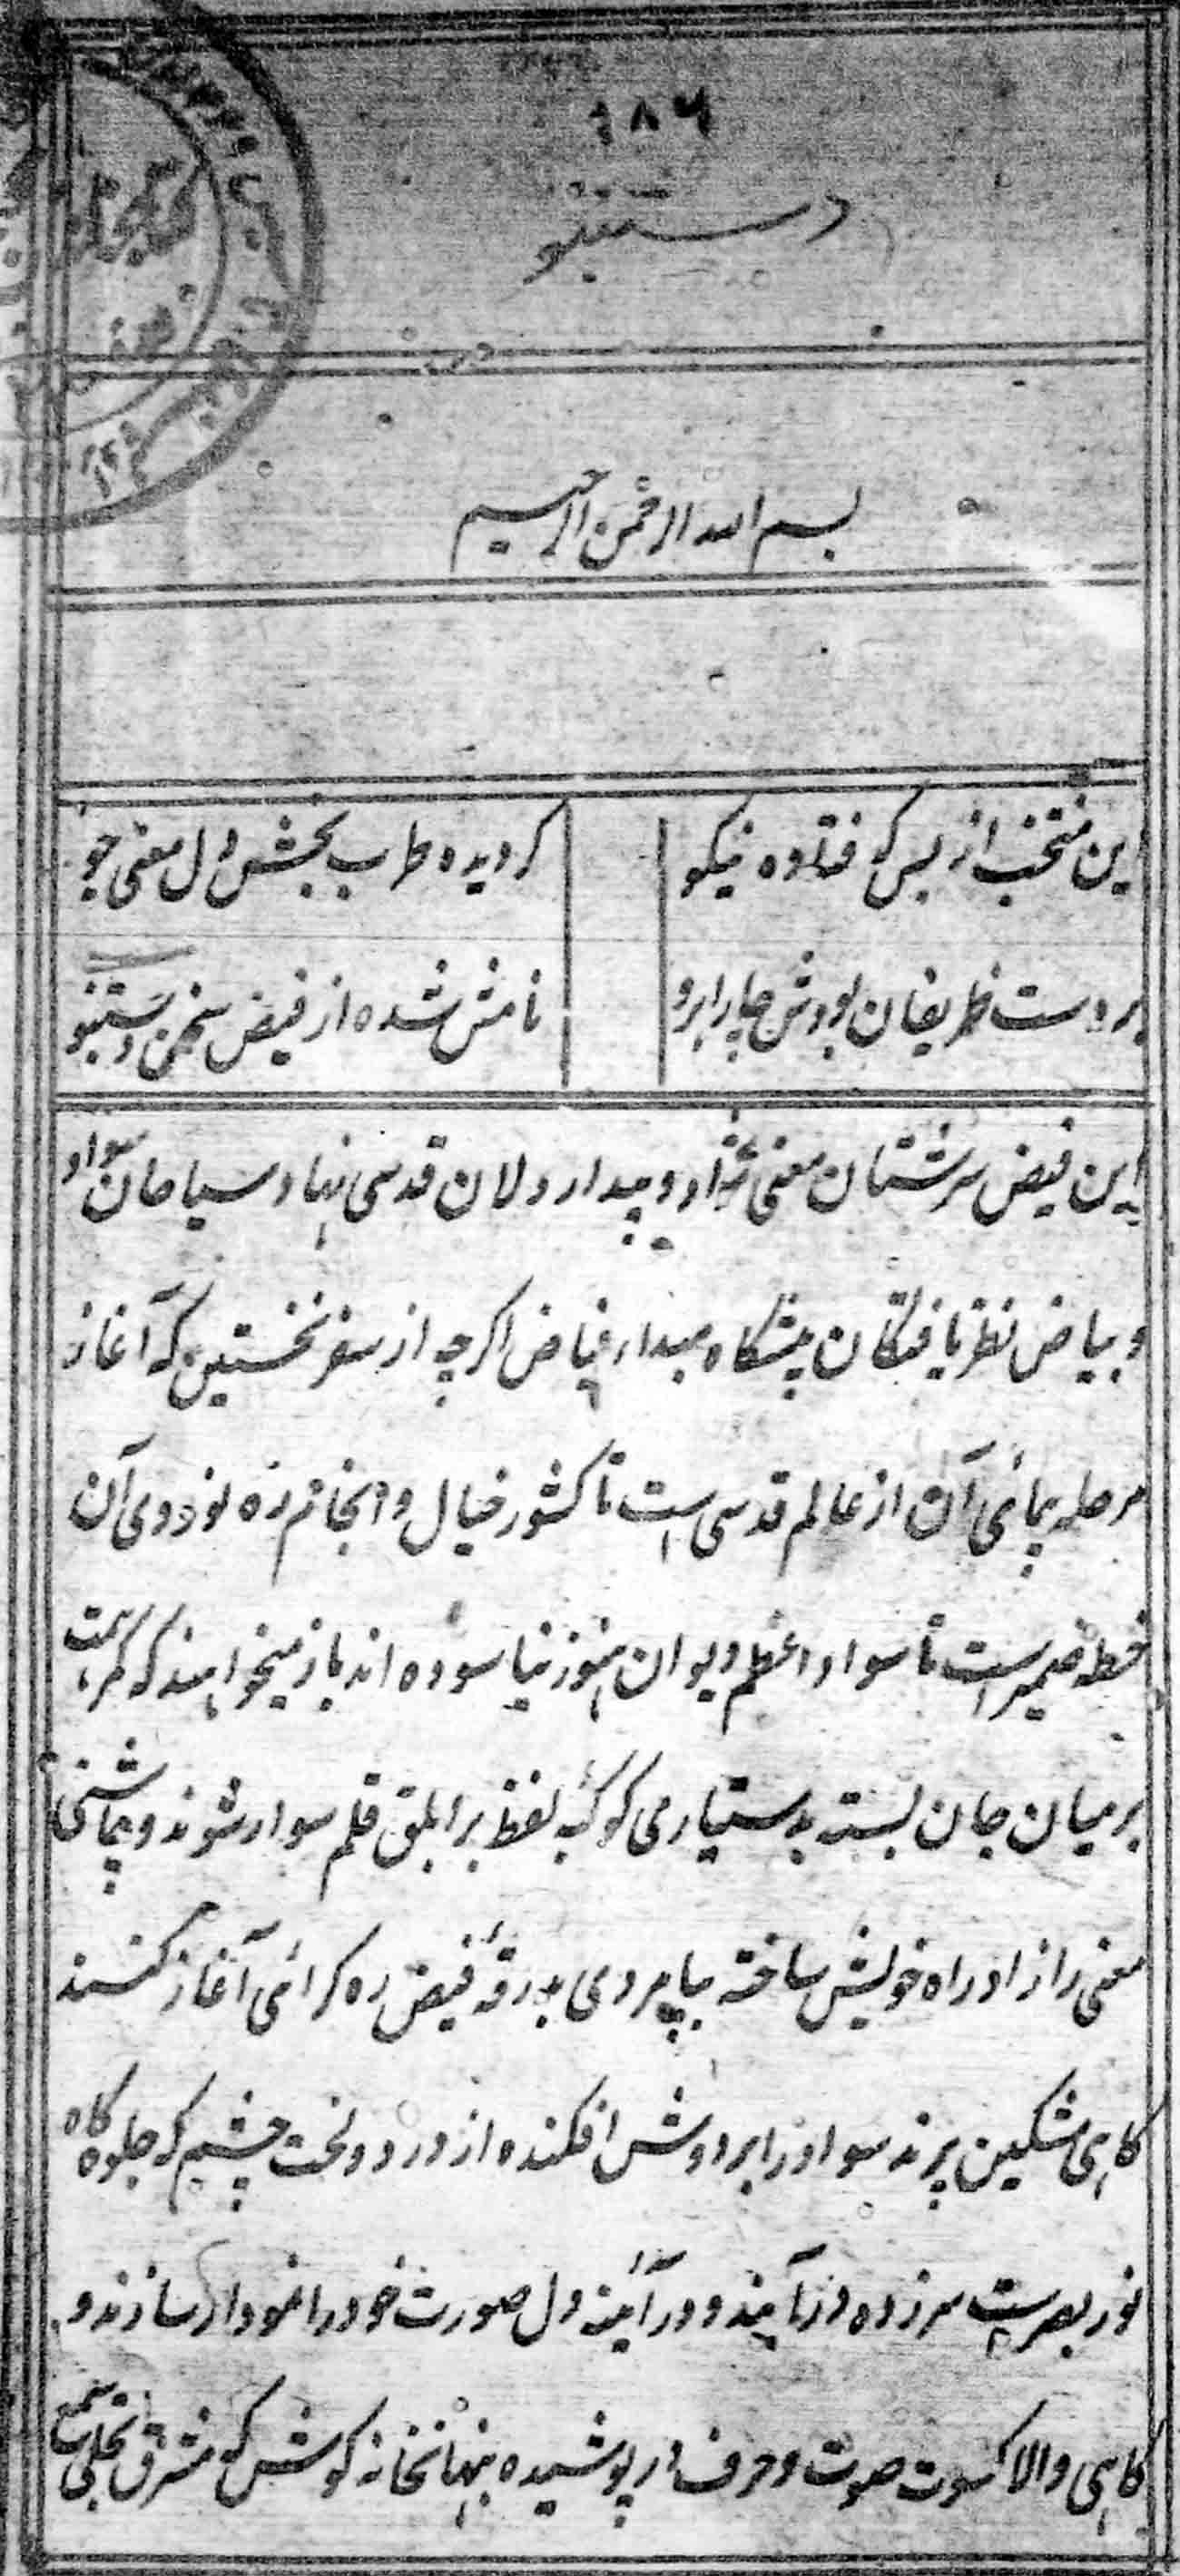 ۱۸۶
دستنبو
بسم الله الرحمن الرحیم
این منتخب از بس که فتاده نیکو
کردیده طرب بخش دل معنی جو
بر دست ظریفان بودش جا برابرو
نامش شده از فیض سخن دستنبو
این فیض سرشتان معنی نژاد و بیدار دلان قدسی نهاد و سیاحان سواد
و بیاض نظر یافتکان پیشکاه مبداء فیاض اکرچه از سفر نخستین که آغاز
مرحله پیمائی آن از عالم قدسی است تا کشور خیال و انجام ره نوردی آن
خطه ضمیر است تا سواد اعظم دیوان هنوز نیاسوده اند باز میخواهند که کمر همت
بر میان جان بسته بدستیاری کوکبه لفظ بر ابلق قلم سوار شوند و چاشنی
معنی را زاد راه خویش ساخته بپامردی بدرقه فیض ره کرائی آغاز کنند
کاهی مشکین پرند سواد را بر دوش افکنده از در دولخت چشم که جلوه کاه
نور بصر است سرزده در آیند و در آئینه دل صورت خود را نمودار سازند و
کاهی والا کسوت صوت و حرف در پوشیده بنهانخانه کوش که مشرق تجلی سمع